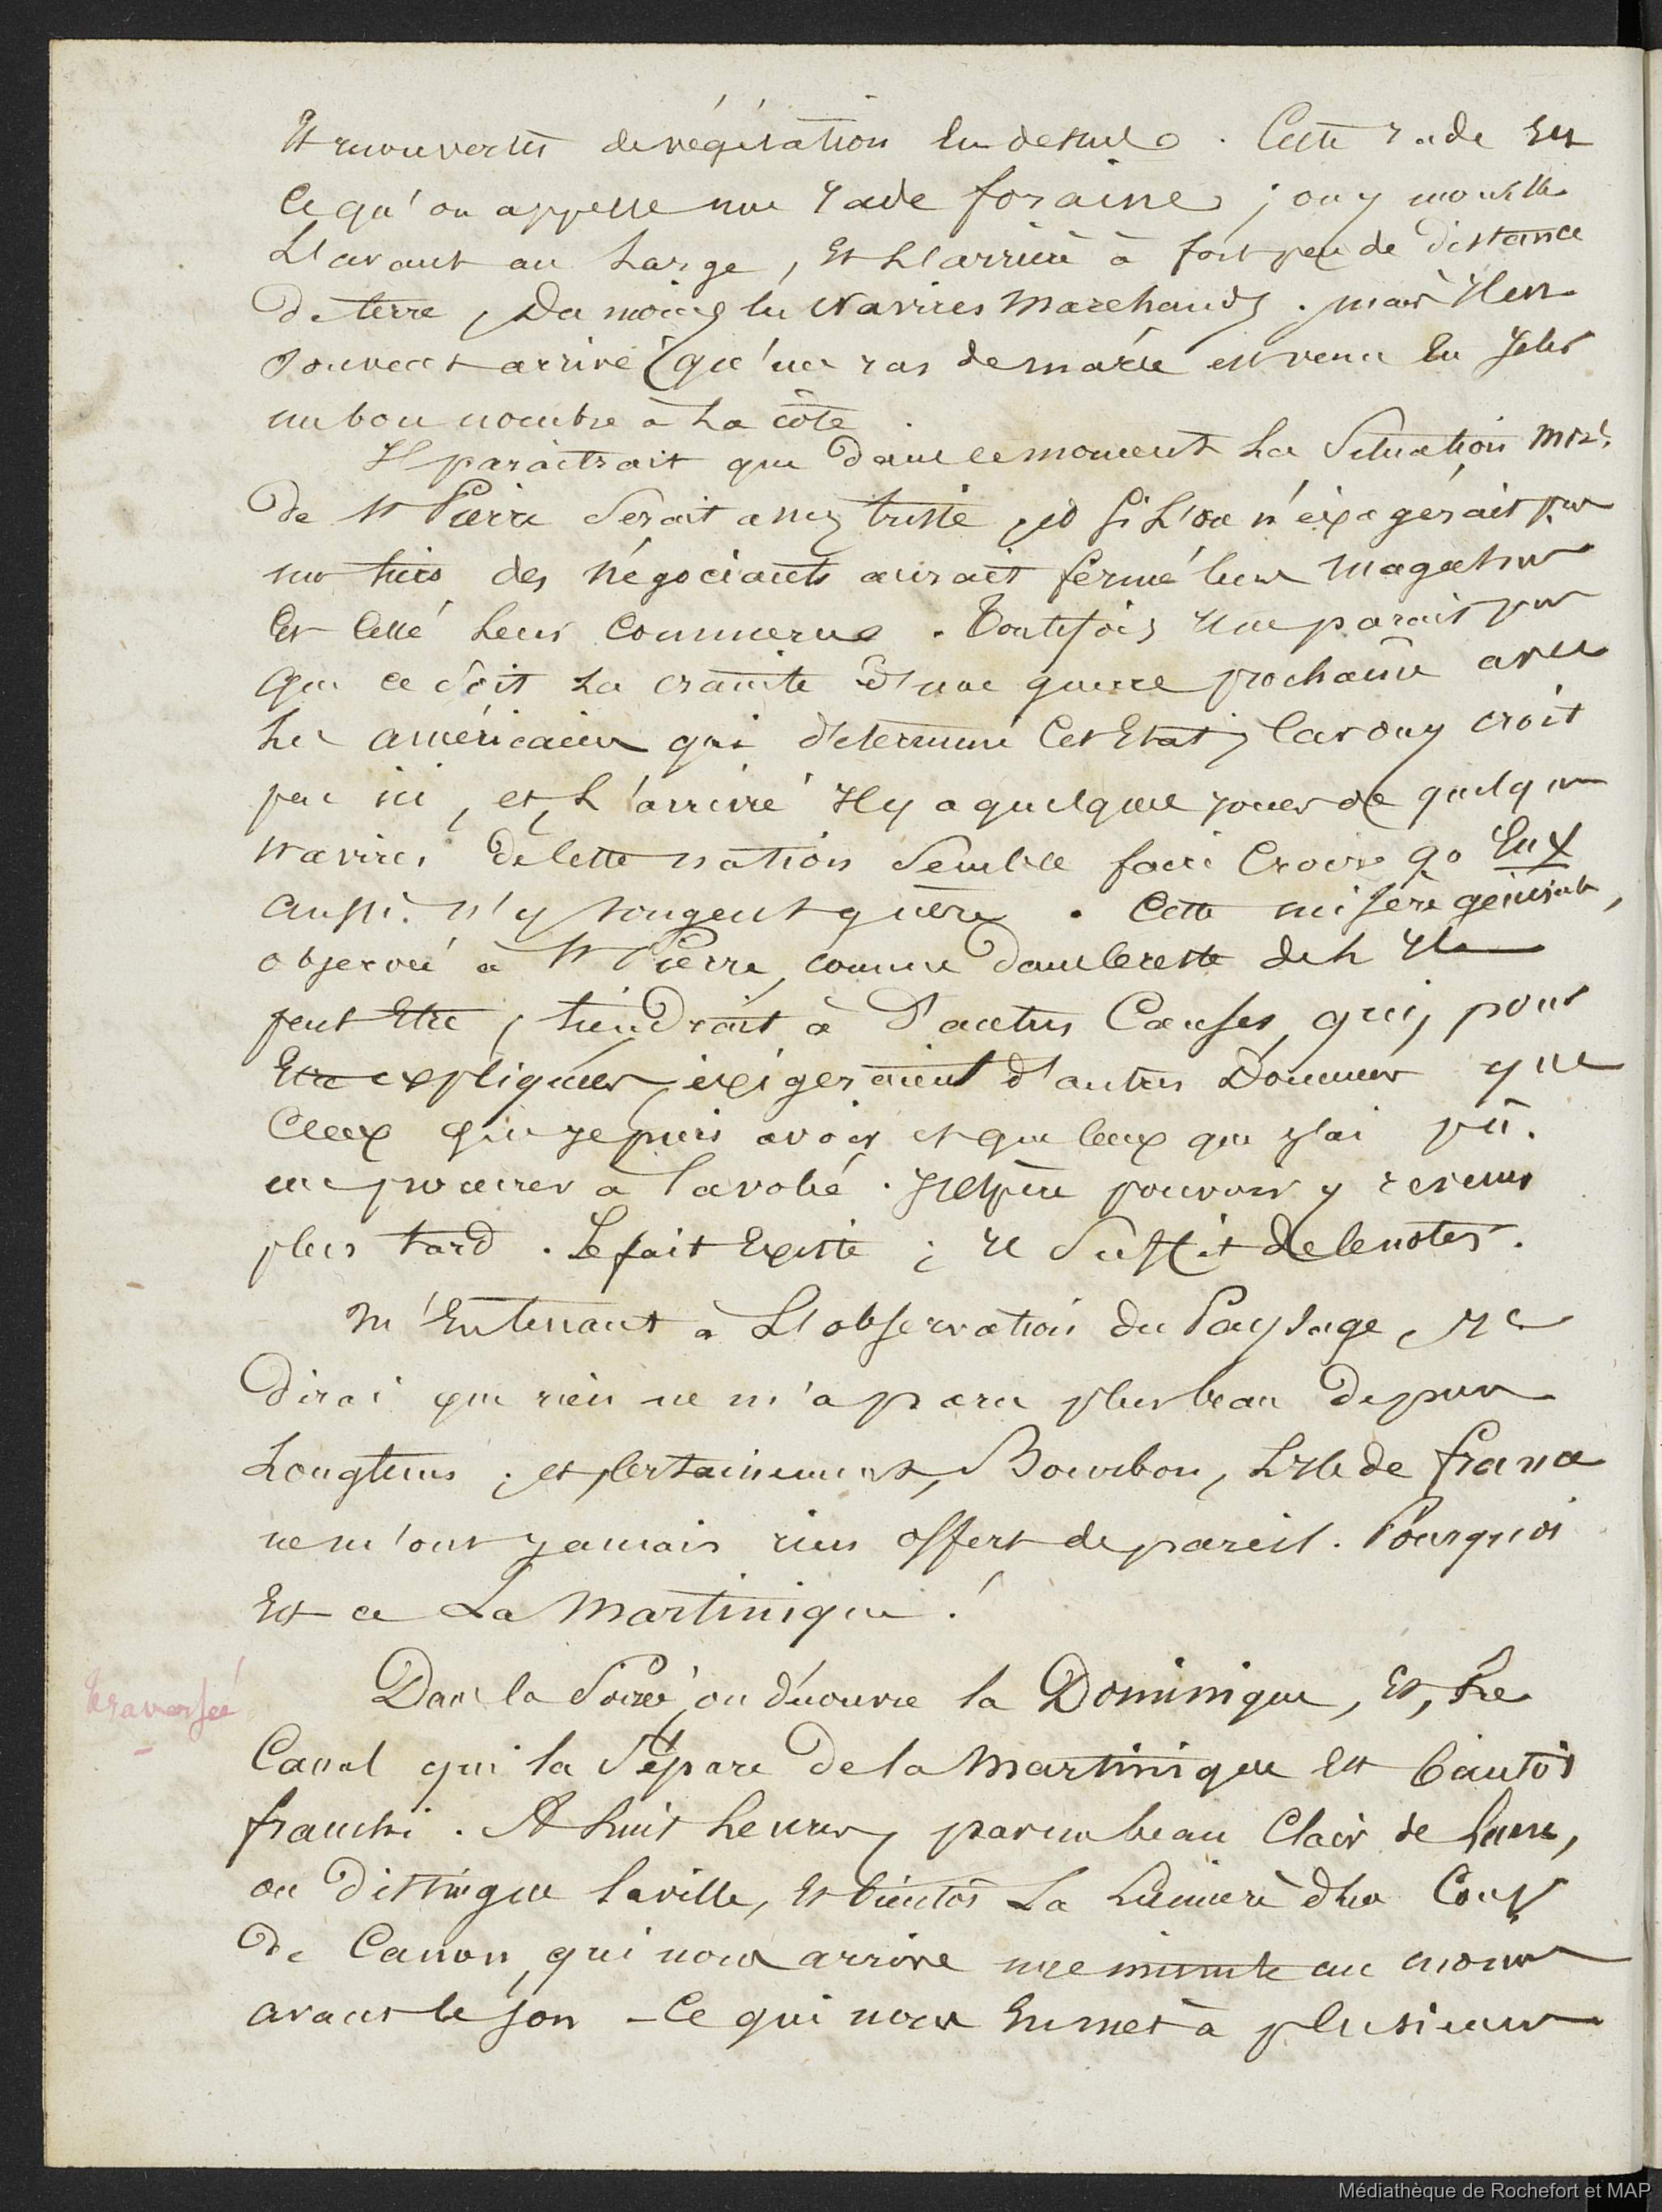 Et recouvertes de végétation en dessus. Cette rade est
ce qu'on appelle une rade foraine ; on y mouille
L'avant au large, et L'arrière à fort peu de distance
de terre, Du moins les Navires Marchands. mais Il est
souvent arrivé qu'un ras de marée est venu en jeter
un bon nombre à La côte
Il paraîtrait que dans ce moment La Situation
de St Pierre Serait assez triste, et Si L'on n'exagérait pas
un tiers des négociants aurait fermé leurs magasins
Et cessé Leur Commerce. Toutefois Il ne parait pas
que ce soit La crainte d'une guerre prochaine avec
Les américains qui détermine cet Etat, car on y croit
peu ici, et L'arrivée Il y a quelques jours de quelques
navires de cette nation Semble faire Croire qe Eux
aussi n'y songent guère. Cette misère générale,
observée à St Pierre, comme dans le reste de L'Ile
peut Etre, tiendrait à D'autres Causes, qui, pour
Etre expliquées, exigeraient d'autres Données que
Ceux que je puis avoir et que ceux que j'ai pû.
me procurer à la volée. J'espère pouvoir y revenir
plus tard. Le fait Existe ; Il Suffit de le noter.
M'En tenant à L'observation du Paysage, Je
Dirai que rien ne m'a paru plus beau depuis
Longtems ; et certainement, Bourbon, L'Ile de france
ne m'ont jamais rien offert de pareil. Pourquoi
Est ce La Martinique !
traversée
Dans la Soirée, on découvre la Dominique, Et, Le
Canal qui la Sépare de la Martinique Est bientôt
franchi. A huit heures, par un beau Clair de Lune,
on Distingue la ville, Et bientôt La Lumière d'un Coup
de Canon, qui nous arrive une minute au moins
avant le son - Ce qui nous En met à plusieurs
Médiathèque de Rochefort et MAP